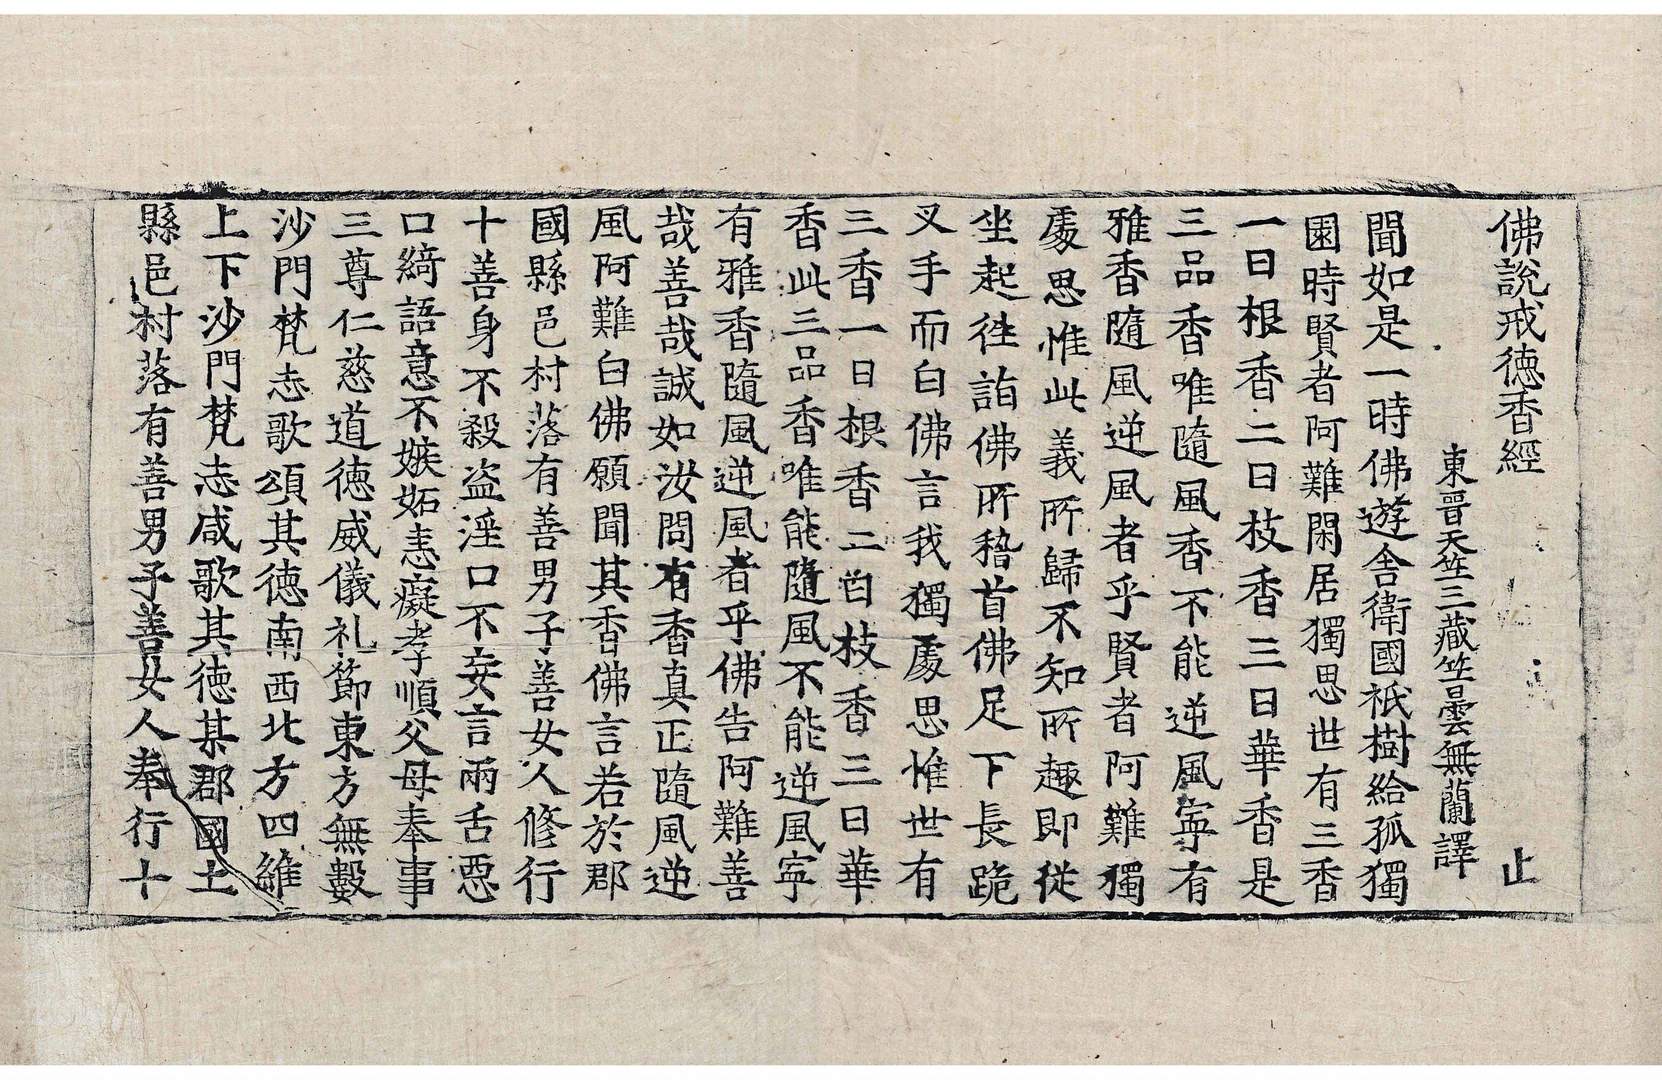 佛說戒德香經 止
東晉天竺三藏竺曇無蘭譯
聞如是一時佛遊舍衛國祇樹給孤獨
園時賢者阿難閑居獨思世有三香
一曰根香二曰枝香三曰華香是
三品香唯隨風香不能逆風寧有
雅香隨風逆風者乎賢者阿難獨
處思惟此義所歸不知所趣即從
坐起往詣佛所稽首佛足下長跪
叉手而白佛言我獨處思惟世有
三香一曰根香二曰枝香三曰華
香此三品香唯能隨風不能逆風寧
有雅香隨風逆風者乎佛告阿難善
哉善哉誠如汝問有香真正隨風逆
風阿難白佛願聞其香佛言若於郡
國縣邑村落有善男子善女人修行
十善身不殺盜淫口不妄言兩舌惡
口綺語意不嫉妬恚癡孝順父母奉事
三尊仁慈道德威儀礼節東方無數
沙門梵志歌頌其德南西北方四維
上下沙門梵志咸歌其德某郡國土
縣邑村落有善男子善女人奉行十